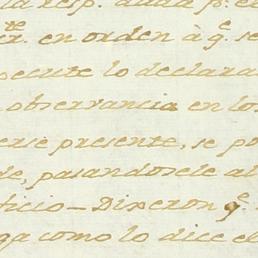 la resp. dada p.r el
te
er. en orden à q.e se
secrete lo declara
observancia en los
erse presente, se po
de, pasandosele al
ficio - Dixeron q.e
ga como lo dice el